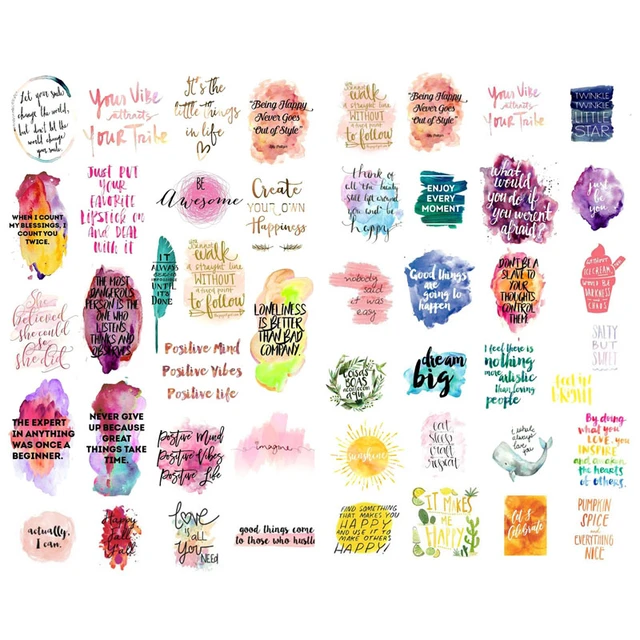 Let your smile
change the world,
but don't let the
world change
your smile.
Your Vibe
attracts
Your Tribe
It's the
little things
in life
"Being Happy
Never Goes
Out of Style"
walk
a straight line
WITHOUT
a fixed point
to follow
"Being Happy
Never Goes
Out of Style"
Your Vibe
attracts
Your Tribe
TWINKLE
TWINKLE
LITTLE
STAR
WHEN I COUNT
MY BLESSINGS, I
COUNT YOU
TWICE.
JUST PUT
YOUR
FAVORITE
LIPSTICK ON
AND DEAL
WITH IT
BE
Awesome
Create
YOUR OWN
Happiness
think of
all the beauty
still left around
you and be
happy
ENJOY
EVERY
MOMENT
what
would
you do if
you weren't
afraid?
just
be
you.
She
believed
she could
so
she did
THE MOST
DANGEROUS
PERSON IS THE
ONE WHO
LISTENS
THINKS AND
OBSERVES
IT
ALWAYS
SEEMS
IMPOSSIBLE
UNTIL
IT'S
DONE
walk
a straight line
WITHOUT
a fixed point
to follow
LONELINESS
IS BETTER
THAN BAD
COMPANY.
nobody
said
it was
easy
Good things
are
going to
happen
DON'T BE A
SLAVE TO
YOUR
THOUGHTS
CONTROL
THEM
WITHOUT
ICE CREAM
WOULD BE
DARKNESS
AND
CHAOS
Positive Mind
Positive Vibes
Positive Life
COISAS
BOAS
acontecem
aqui
dream
big
I feel there is
nothing
more artistic
than loving
people
SALTY
BUT
SWEET
THE EXPERT
IN ANYTHING
WAS ONCE A
BEGINNER.
NEVER GIVE
UP BECAUSE
GREAT
THINGS TAKE
TIME.
Positive Mind
Positive Vibes
Positive Life
imagine
sunshine
eat
sleep
craft
repeat
I whale
always
love
you
By doing
what you
LOVE, you
INSPIRE
and awaken
the hearts
of others.
actually,
I can.
Happy
fall
Y'all
LOVE
is ALL
You
NEED
good things come
to those who hustle
FIND SOMETHING
THAT MAKES YOU
HAPPY
AND USE IT TO
MAKE OTHERS
HAPPY!
IT MAKES
ME
HAPPY
Let's
Celebrate
PUMPKIN
SPICE
and
EVERYTHING
NICE